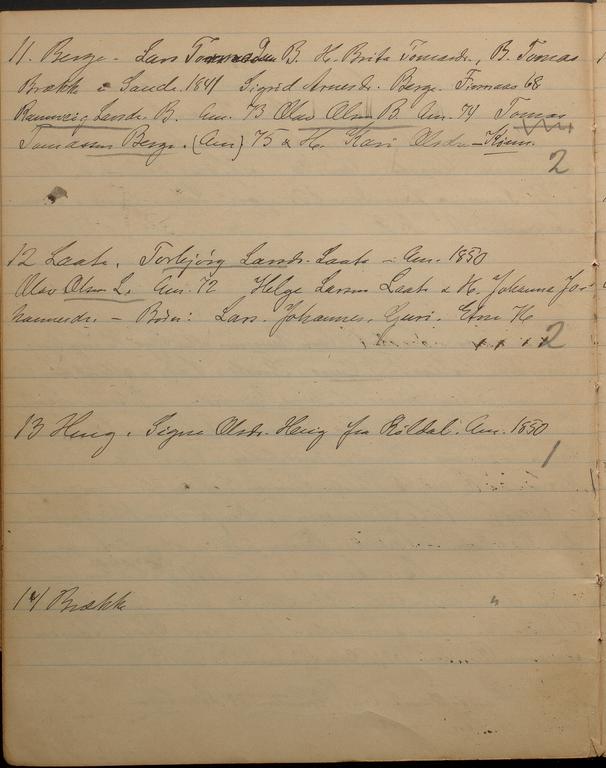 11. Berge - Lars B. H. Brita Tomasdr., B. Tomas
Brække o Sande. 1841 Sigrid Arnesdr. Berge. Finnaas 68
Larsdr. B. Am. 73 Olav Olsen B. Am. 74 Tomas
Tomassen Berge. (Am) 75 & H. Kari Olsdr -
2
12 Laate. Torbjørg Larsdr. Laate - Am. 1850
Olav Olsen L. Am. 72 Helge Larsen Laate & H. Johanna Jo-
hannesdr. - Børn: Lars. Johannes. Guri. Etne 76
2
13 Haug. Signe Olsdr. Haug fra Röldal. Am. 1850
1
14 Brække
"